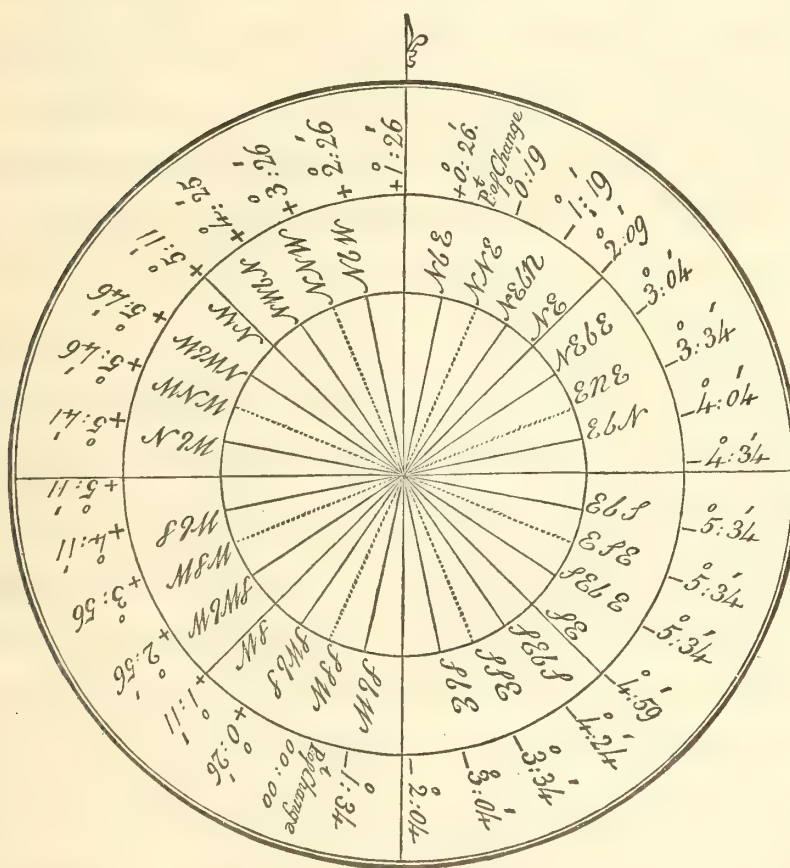 +0°:26'.
Pt. of Change
-0°:19'
-1°:19'
-2°:09'
-3°:04'
-3°:34'
-4°:04'
-4°:34'
-5°:34'
-5°:34'
-5°:34'
-4°:59'
-4°:24'
-3°:34'
-3°:04'
-2°:04'
-1°:34'
Pt. of Change
00:00
+0°:26'
+1°:11'
+2°:56'
+3°:56'
+4°:11'
+5°:11'
+5°:41'
+5°:46'
+5°:46'
+5°:11'
+4°:25'
+3°:26'
+2°:26'
+1°:26'
NbE
NNE
NEbN
NE
NEbE
ENE
EbN
EbS
ESE
SEbE
SE
SEbS
SSE
SbE
SbW
SSW
SWbS
SW
SWbW
WSW
WbS
WbN
WNW
NWbW
NW
NWbN
NNW
NbW